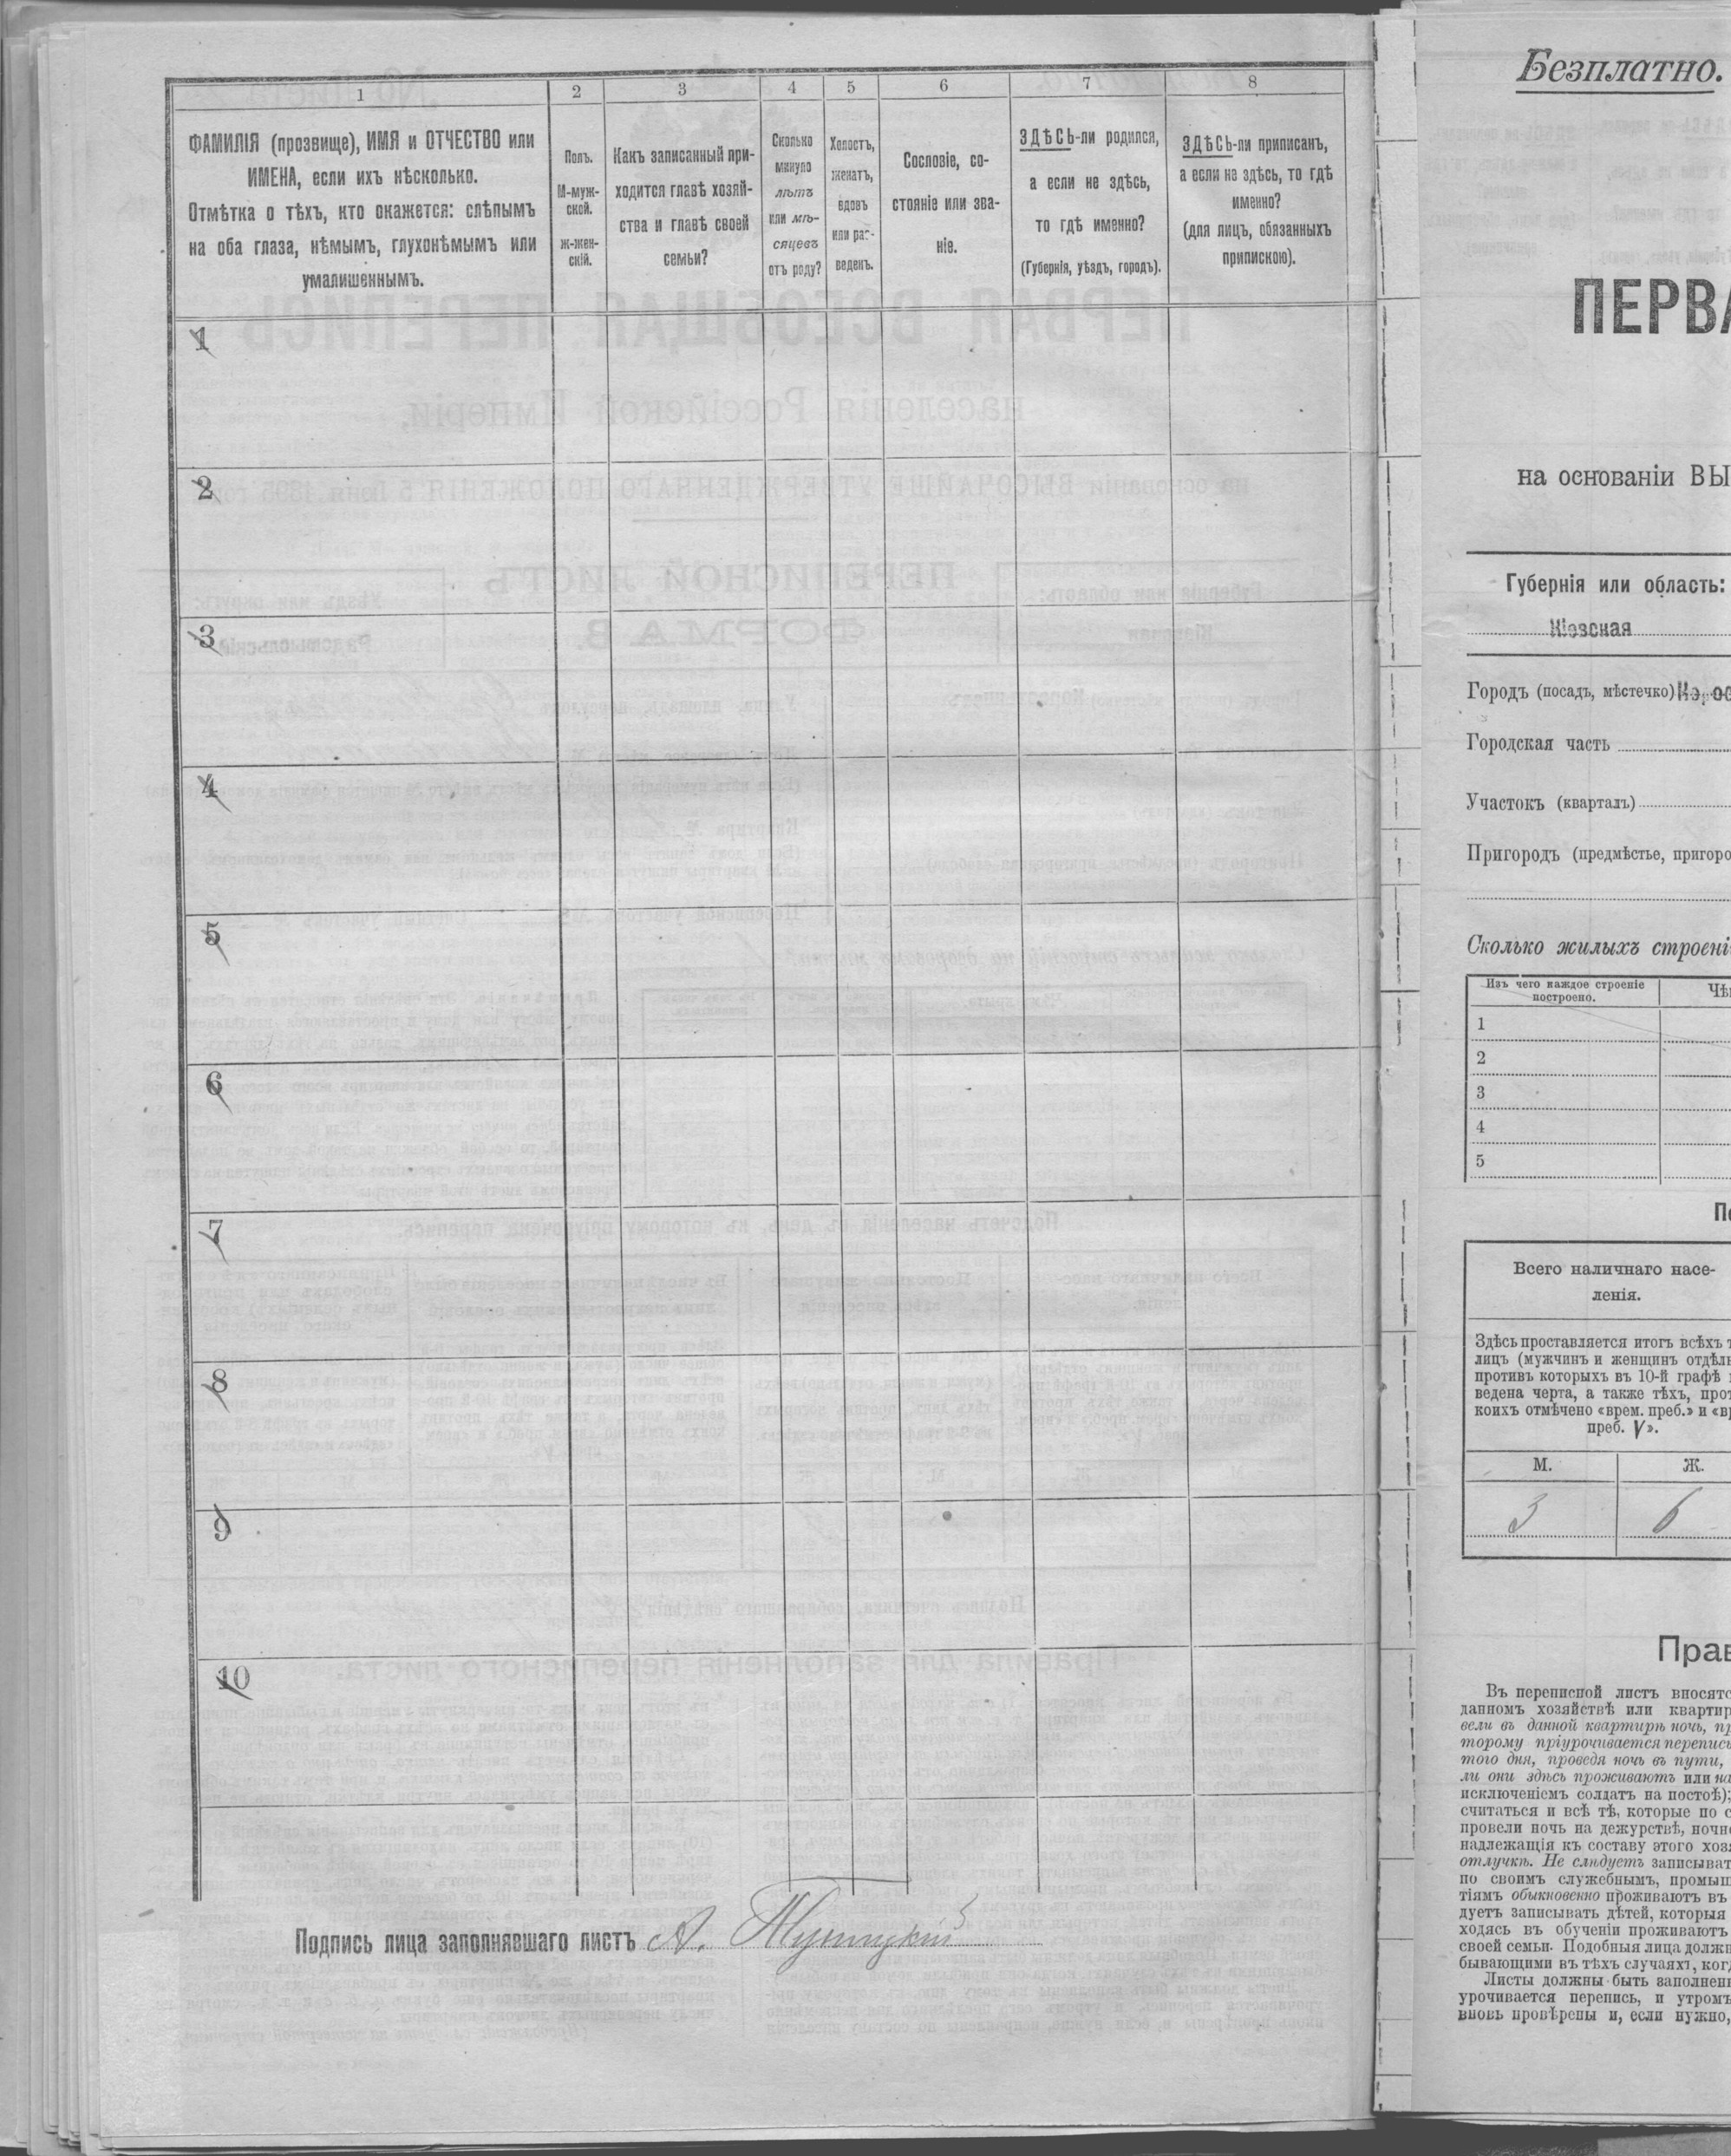 1
2
3
4
5
6
7
8
ФАМИЛІЯ (прозвище), ИМЯ и ОТЧЕСТВО или
ИМЕНА, если ихъ нѣсколько.
Отмѣтка о тѣхъ, кто окажется: слѣпымъ
на оба глаза, нѣмымъ, глухонѣмымъ или
умалишеннымъ.
Полъ.
М-муж-
ской.
ж-жен-
скій.
Какъ записанный при-
ходится главѣ хозяй-
ства и главѣ своей
семьи?
Сколько
минуло
лѣтъ
или мѣ-
сяцевъ
отъ роду?
Холостъ,
женатъ,
вдовъ
или раз-
веденъ.
Сословіе, со-
стояніе или зва-
ніе.
ЗДѢСЬ-ли родился,
а если не здѣсь,
то гдѣ именно?
(Губернія, уѣздъ, городъ).
ЗДѢСЬ-ли приписанъ,
а если не здѣсь, то гдѣ
именно?
(для лицъ, обязанныхъ
припискою).
1
2
3
4
5
6
7
8
9
10
Подпись лица заполнявшаго листъ А.
Безплатно.
ПЕРВА
на основаніи ВЫ
Губернія или область:
Кіевская
Городъ (посадъ, мѣстечко)
Городская часть
Участокъ (кварталъ)
Пригородъ (предмѣстье, пригоро
Сколько жилыхъ строені
Изъ чего каждое строеніе
построено.
Чѣ
1
2
3
4
5
По
Всего наличнаго насе-
ленія.
Здѣсь проставляется итогъ всѣхъ т
лицъ (мужчинъ и женщинъ отдѣль
противъ которыхъ въ 10-й графѣ
ведена черта, а также тѣхъ, прот
коихъ отмѣчено «врем. преб.» и «вр
преб. V».
М.
Ж.
3
6
Прав
Въ переписной листъ вносятс
данномъ хозяйствѣ или квартир
вели въ данной квартирѣ ночь, пр
торому пріурочивается перепись
того дня, проведя ночь въ пути,
ли они здѣсь проживаютъ или на
исключеніемъ солдатъ на постоѣ);
считаться и всѣ тѣ, которые по с
провели ночь на дежурствѣ, ночно
надлежащія къ составу этого хозя
отлучкѣ. Не слѣдуетъ записыват
по своимъ служебнымъ, промыш
тіямъ обыкновенно проживаютъ въ
дуетъ записывать дѣтей, которыя
ходясь въ обученіи проживаютъ
своей семьи. Подобныя лица должн
бывающими въ тѣхъ случаяхъ, когд
Листы должны быть заполнен
урочивается перепись, и утромъ
вновь провѣрены и, если нужно,